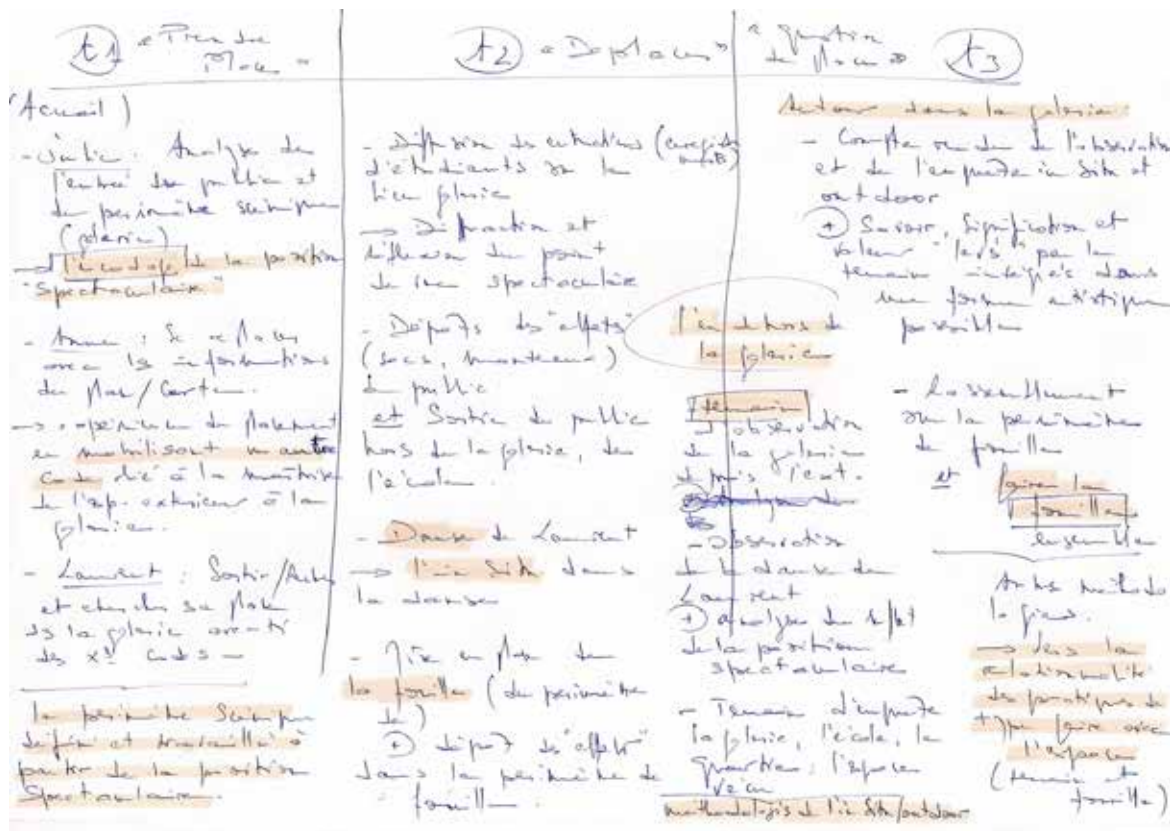 t1 « Prendre
Place »
(Accueil)
- Julie : Analyse de
l'entrée du public et
du périmètre scénique
(galerie)
→ l'encodage de la position
"spectaculaire"
- Anne : Se replacer
avec les informations
du plan/carte.
→ expérience de placement
en mobilisant un autre
code lié à la maîtrise
de l'esp. extérieur à la
galerie.
- Laurent : Sortir/
et chercher sa place
ds la galerie
des codes —
le périmètre scénique
défini et travaillé à
partir de la position
spectaculaire.
t2 « Déplacer »
- Diffusion des entretiens (enregistrements)
d'étudiants sur le
lieu galerie
→ Diffraction et
du point
de vue spectaculaire
- Dépôts des "effets"
(sacs, manteaux)
du public
et Sortie du public
hors de la galerie, de
l'école.
- Danse de Laurent
→ l'in situ dans
la danse
- Mise en place de
la fouille (du périmètre
de)
+ dépôt des "effets"
dans le périmètre de
fouille.
« question
de place » t3
l'en dehors de
la galerie
terrain
d'observation
de la galerie
depuis l'ext.
- Observation
de la danse de
Laurent
+ analyse de
de la position
spectaculaire
- Terrain d'enquête
la galerie, l'école, le
quartier, l'espace
vécu
méthodologie de l'in situ/outdoor
Retour dans la galerie.
- Compte rendu de l'observation
et de l'enquête in situ et
outdoor
+ Savoir, signification et
valeur "levés" par le
terrain intégrés dans
une forme artistique
possible
- Rassemblement
sur le périmètre
de fouille
et faire la
fouille
ensemble
méthodo
logiques.
→ Vers la
relationnalité
des pratiques de
type faire avec
l'espace
(terrain et
fouille)